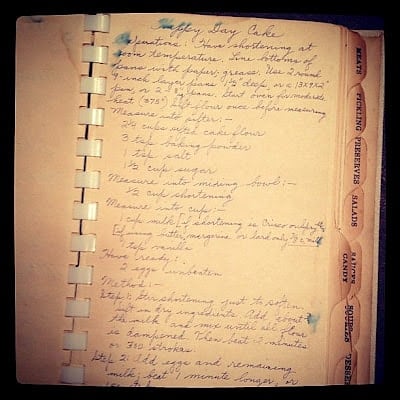 Happy Day Cake
Operations: Have shortening at
room temperature. Line bottoms of
pans with paper; grease. Use 2 round
9-inch layer pans 1½" deep, or a 13x9x2"
pan, or 2 - pans. Start oven for moderate
heat (375°) Sift flour once before measuring
Measure into sifter:-
2¼ cups sifted cake flour
3 tsp baking powder
1 tsp salt
cup sugar
Measure into mixing bowl:-
½ cup shortening
Measure into cup:-
1 cup milk if shortening is Crisco or
If using butter, margerine or lard only milk
1 tsp vanilla
Have ready:
2 eggs unbeaten
Method:-
Step 1: Stir shortening just to soften.
Sift in dry ingredients. Add about
the milk and mix until all flour
is dampened. Then beat 2 minutes
or 300 strokes.
Step 2: Add eggs and remaining
milk; beat 1 minute longer, or
MEATS
PICKLING PRESERVES
SALADS
SAUCES
CANDY
SOUFFLES
DESSER